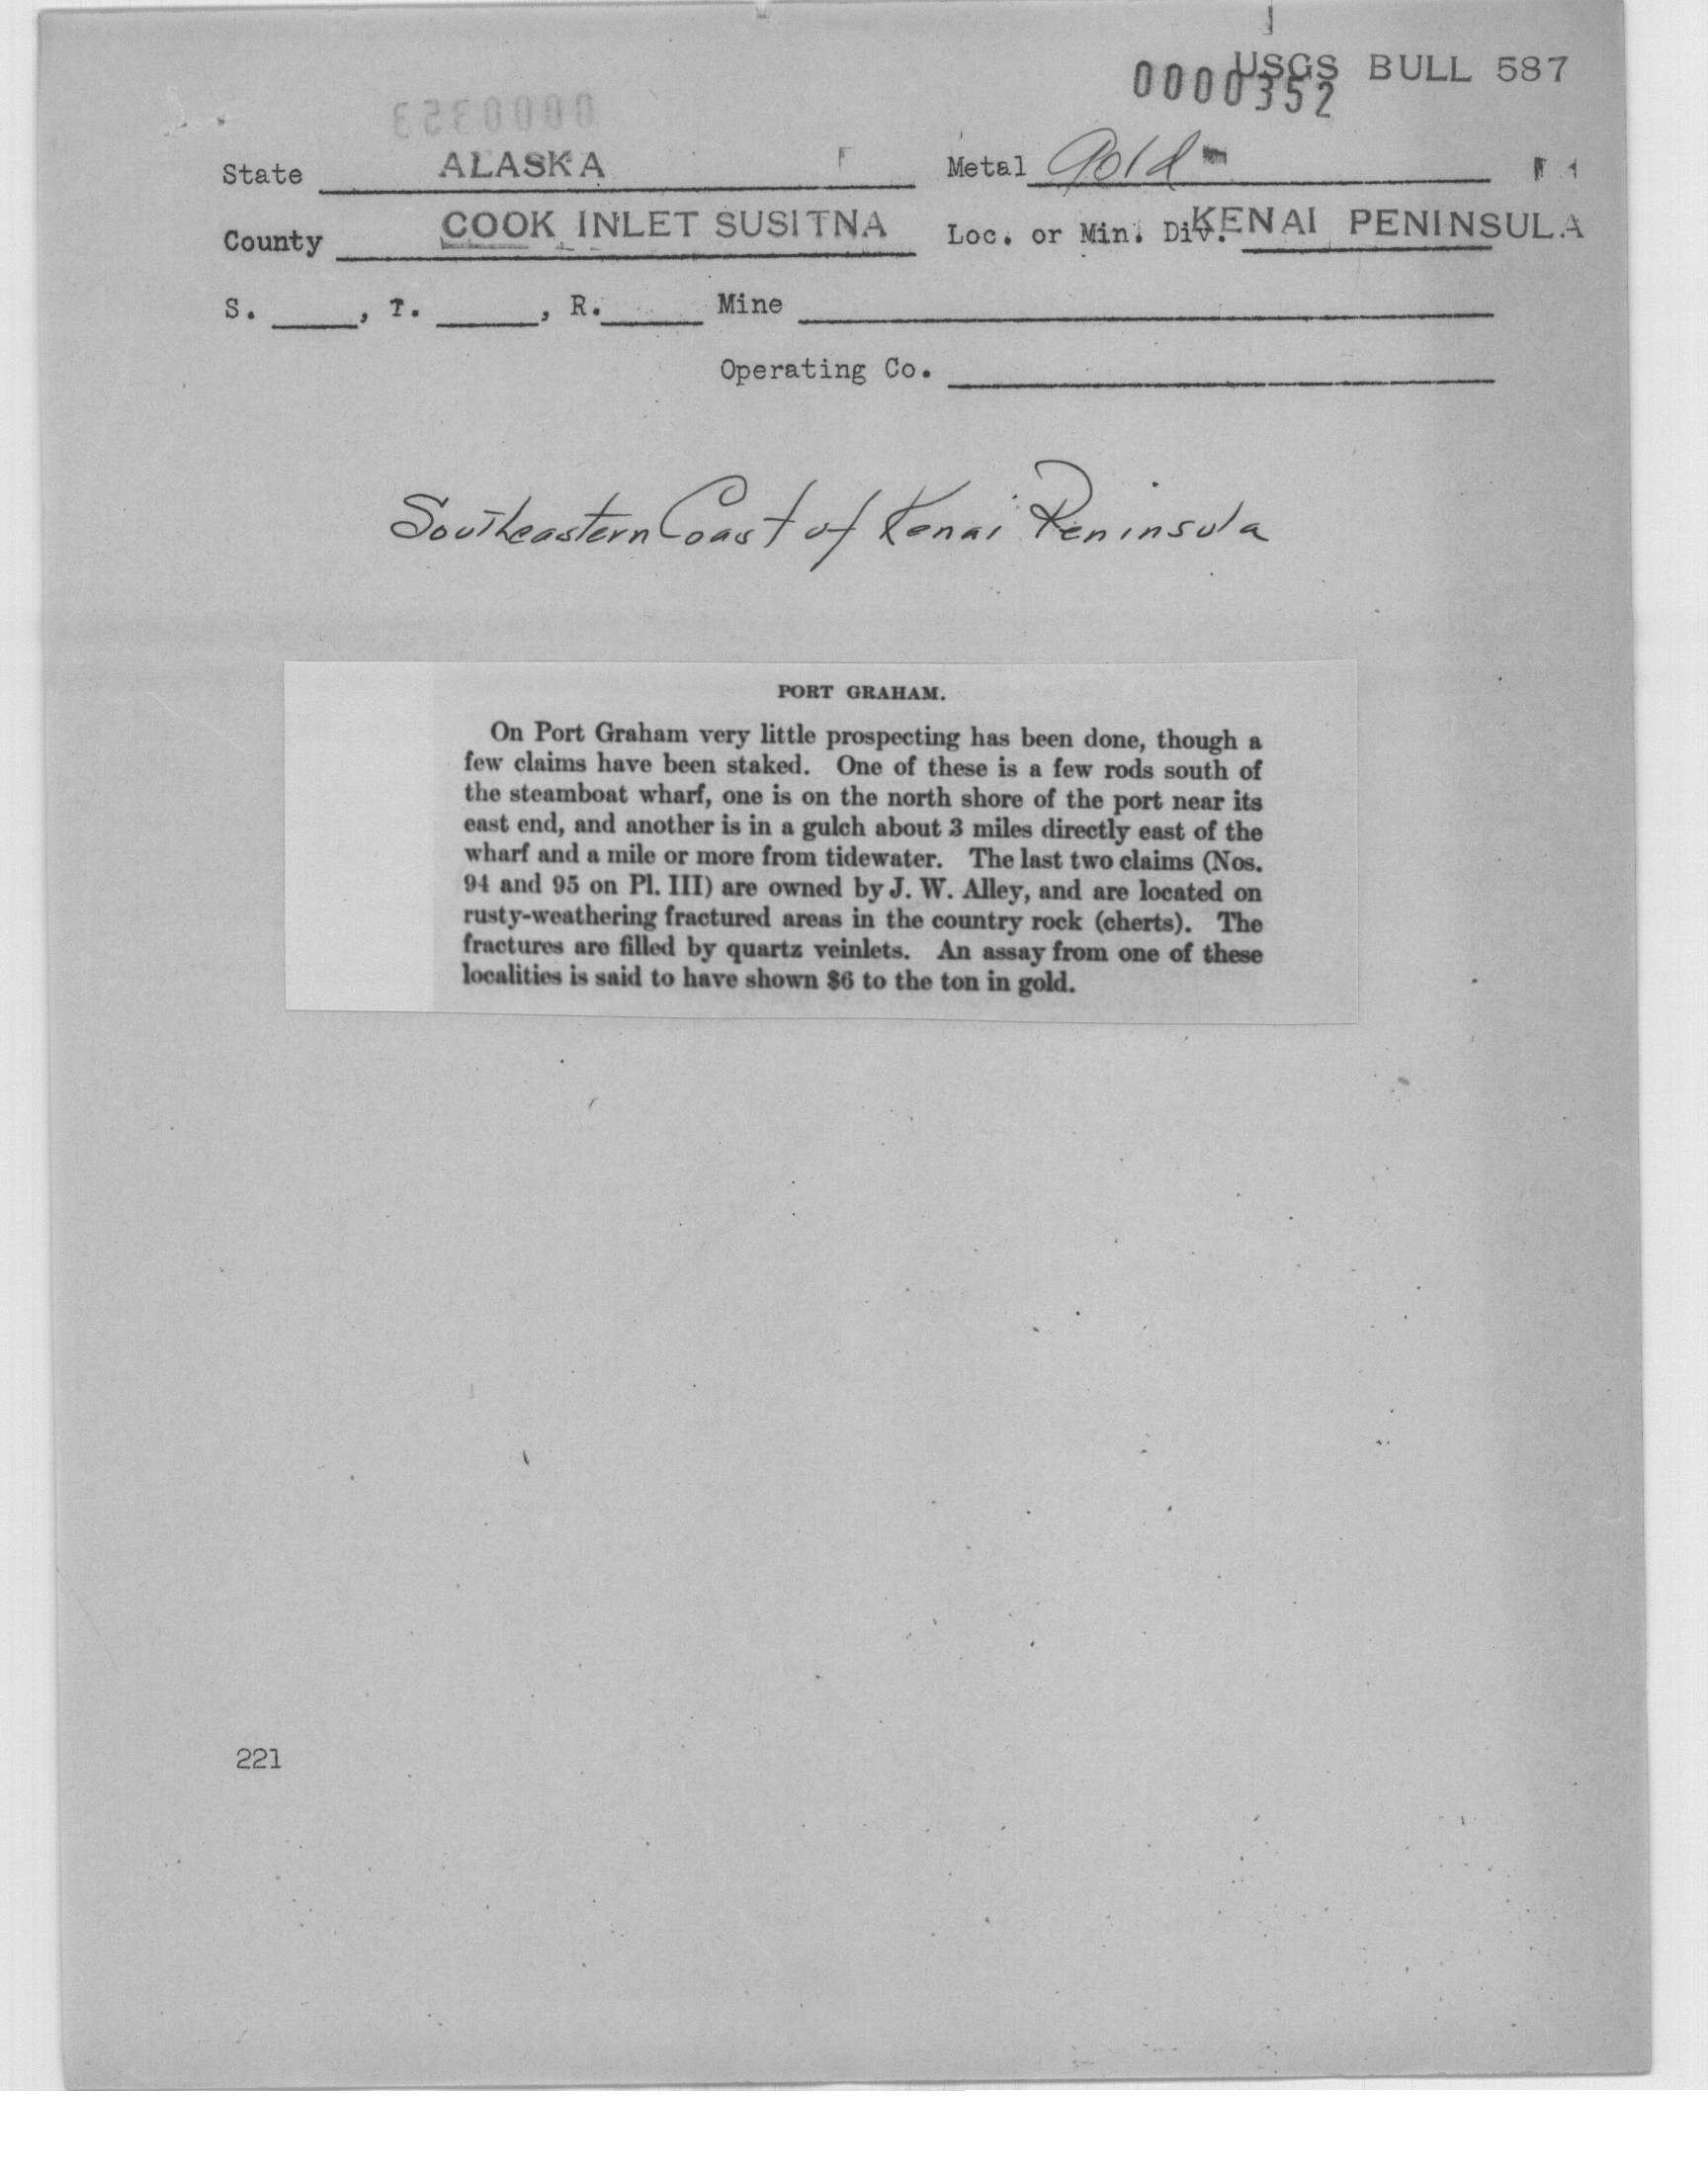 USGS BULL 587
0000352
0000353
State ALASKA Metal Gold
County COOK INLET SUSITNA Loc. or Min. Div. KENAI PENINSULA
S. _____, T. _____, R. _____ Mine
Operating Co.
Southeastern Coast of Kenai Peninsula
PORT GRAHAM.
On Port Graham very little prospecting has been done, though a
few claims have been staked. One of these is a few rods south of
the steamboat wharf, one is on the north shore of the port near its
east end, and another is in a gulch about 3 miles directly east of the
wharf and a mile or more from tidewater. The last two claims (Nos.
94 and 95 on Pl. III) are owned by J. W. Alley, and are located on
rusty-weathering fractured areas in the country rock (cherts). The
fractures are filled by quartz veinlets. An assay from one of these
localities is said to have shown $6 to the ton in gold.
221